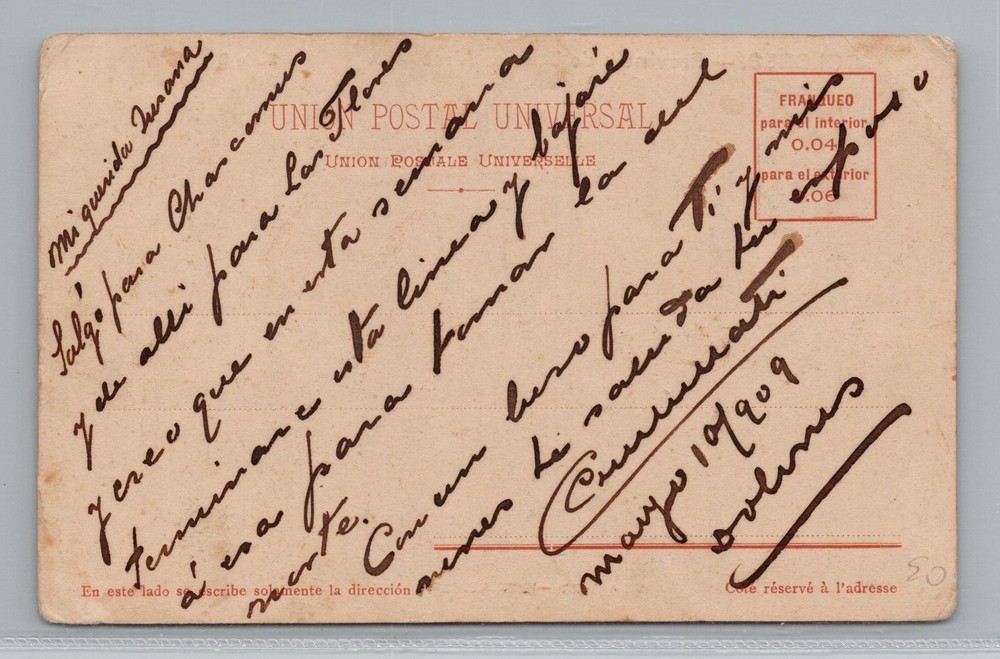 UNION POSTAL UNIVERSAL
UNION POSTALE UNIVERSELLE
FRANQUEO
para el interior
0.04
para el exterior
0.06
Mi querida Susana
Salgo para Chascomus
y de alli para Las Flores
y creo que en esta semana
terminaré esta linea y bajaré
á esa para tomar la del
norte.
Con un beso para Ti y mis
nenes te saluda tu esposo
mayo 10/909
Dolores
En este lado se escribe solamente la dirección
Côté réservé à l'adresse
50